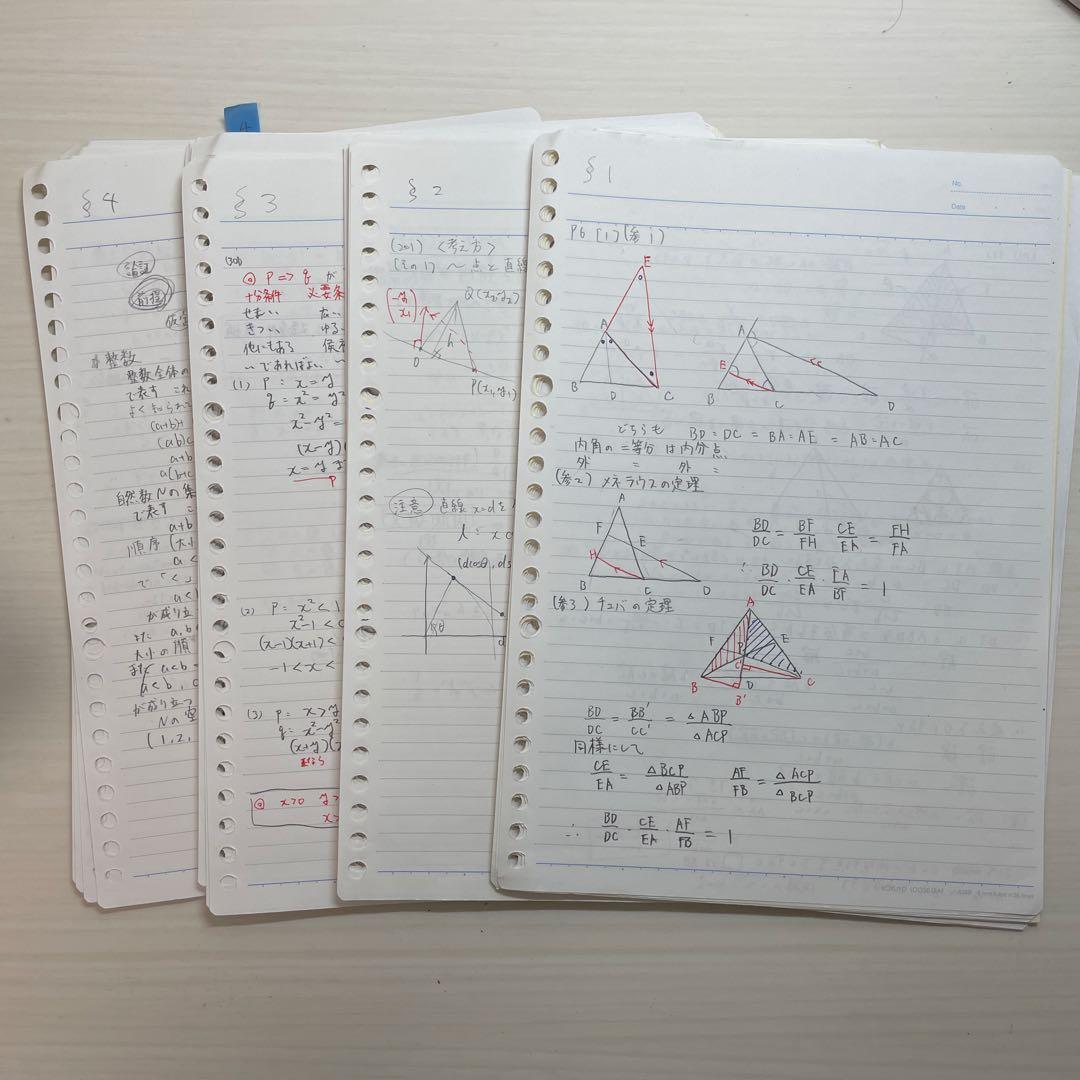 §4
論証
前提
整数
整数全体の
で表す これ
よく知られて
(a+b)+
(ab)c
a+b
a(b+c
自然数Nの集
で表す こ
a+b
順序(大小
a<
で「<」
a<b
が成り立
また a,b
大小の順
また a<b
a<b, c
が成り立つ
Nの空
(1,2,
§3
(301)
◎ P⇒q が
十分条件 必要条
せまい 広い
きつい ゆる
他にもある 候補
〃であればよい 〃
(1) P: x=y
q: x²=y²
x²-y²=
(x-y)(
x=y ま
P
(2) P: x²<1
x²-1<0
(x-1)(x+1)<
-1<x<
(3) P: x>y
q: x²-y²
(x+y)(
正なら
◎ x>0 y>
x>
§2
(201) <考え方>
[その1] ~点と直線
(-y₁ x₁) Q(x₂,y₂)
h
O
P(x₁,y₁)
注意 直線 x=dを
l: x c
(dcosθ, ds
θ
d
§1
No.
Date
P6 [1](参1)
E
A A
E
B D C B C D
どちらも BD:DC = BA:AE = AB:AC
内角の二等分は内分点
外 〃 外 〃
(参2) メネラウスの定理
A
F E
H
B C D
BD/DC = BF/FH CE/EA = FH/FA
∴ BD/DC · CE/EA · FA/BF = 1
(参3) チェバの定理
A
F E
P
C'
B D C
B'
BD/DC = BB'/CC' = △ABP/△ACP
同様にして
CE/EA = △BCP/△ABP AF/FB = △ACP/△BCP
∴ BD/DC · CE/EA · AF/FB = 1